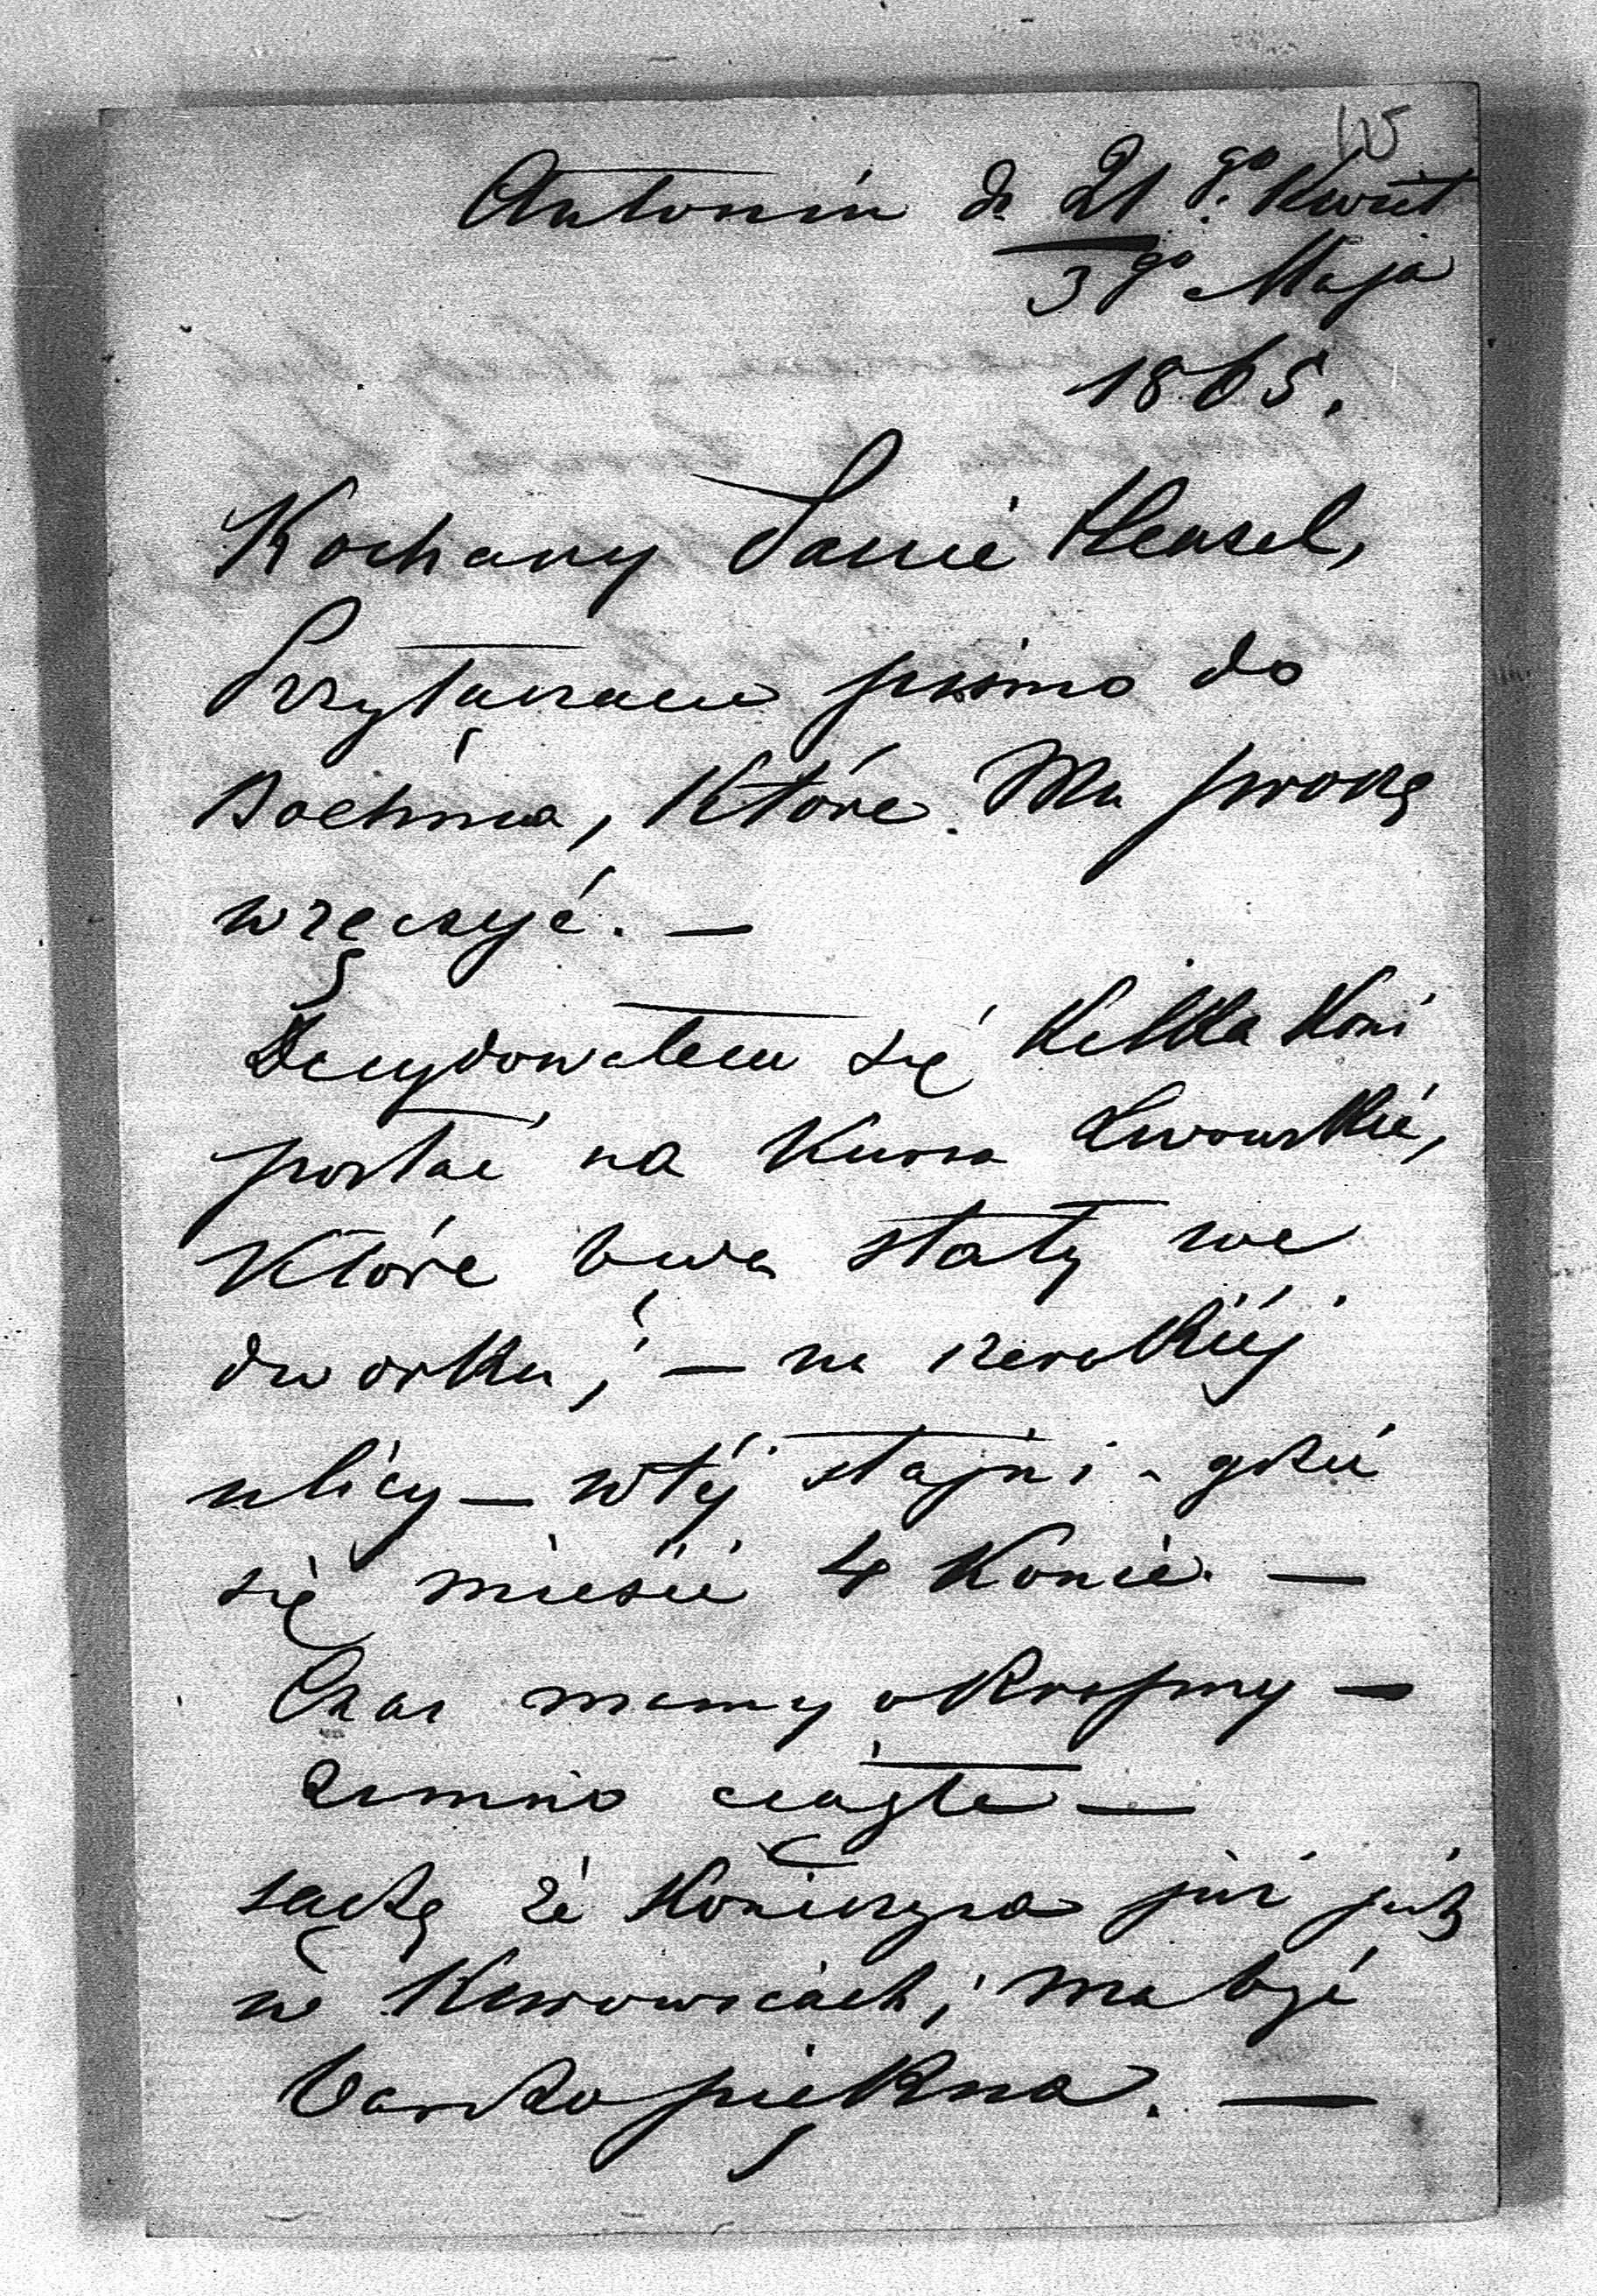 125
Antonin d. 21go Kwiet
3go Maja
1865.
Kochany Panie Hensel,
Przyłączam pismo do
Boehma, które Mu proszę
wręczyć. —
Decydowałem się kilka koni
posłać na Kursa Lwowskie,
które będą stały we
dworku; — na szerokiéj
ulicy — w téj stajni - gdzie
się mieści 4 konie. —
Czas mamy okropny —
zimno ciągłe —
sądzę że Koniczyna już jest
w Kurowicach; ma być
bardzo piękna. —